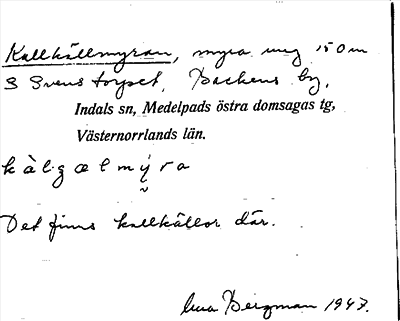 Kallkällmyran, myra ung 150 m
S Svenstorpet, Backens by,
Indals sn, Medelpads östra domsagas tg,
Västernorrlands län.
kàlgælmý̰ra
Det finns kallkällor där.
Bergman 1947.